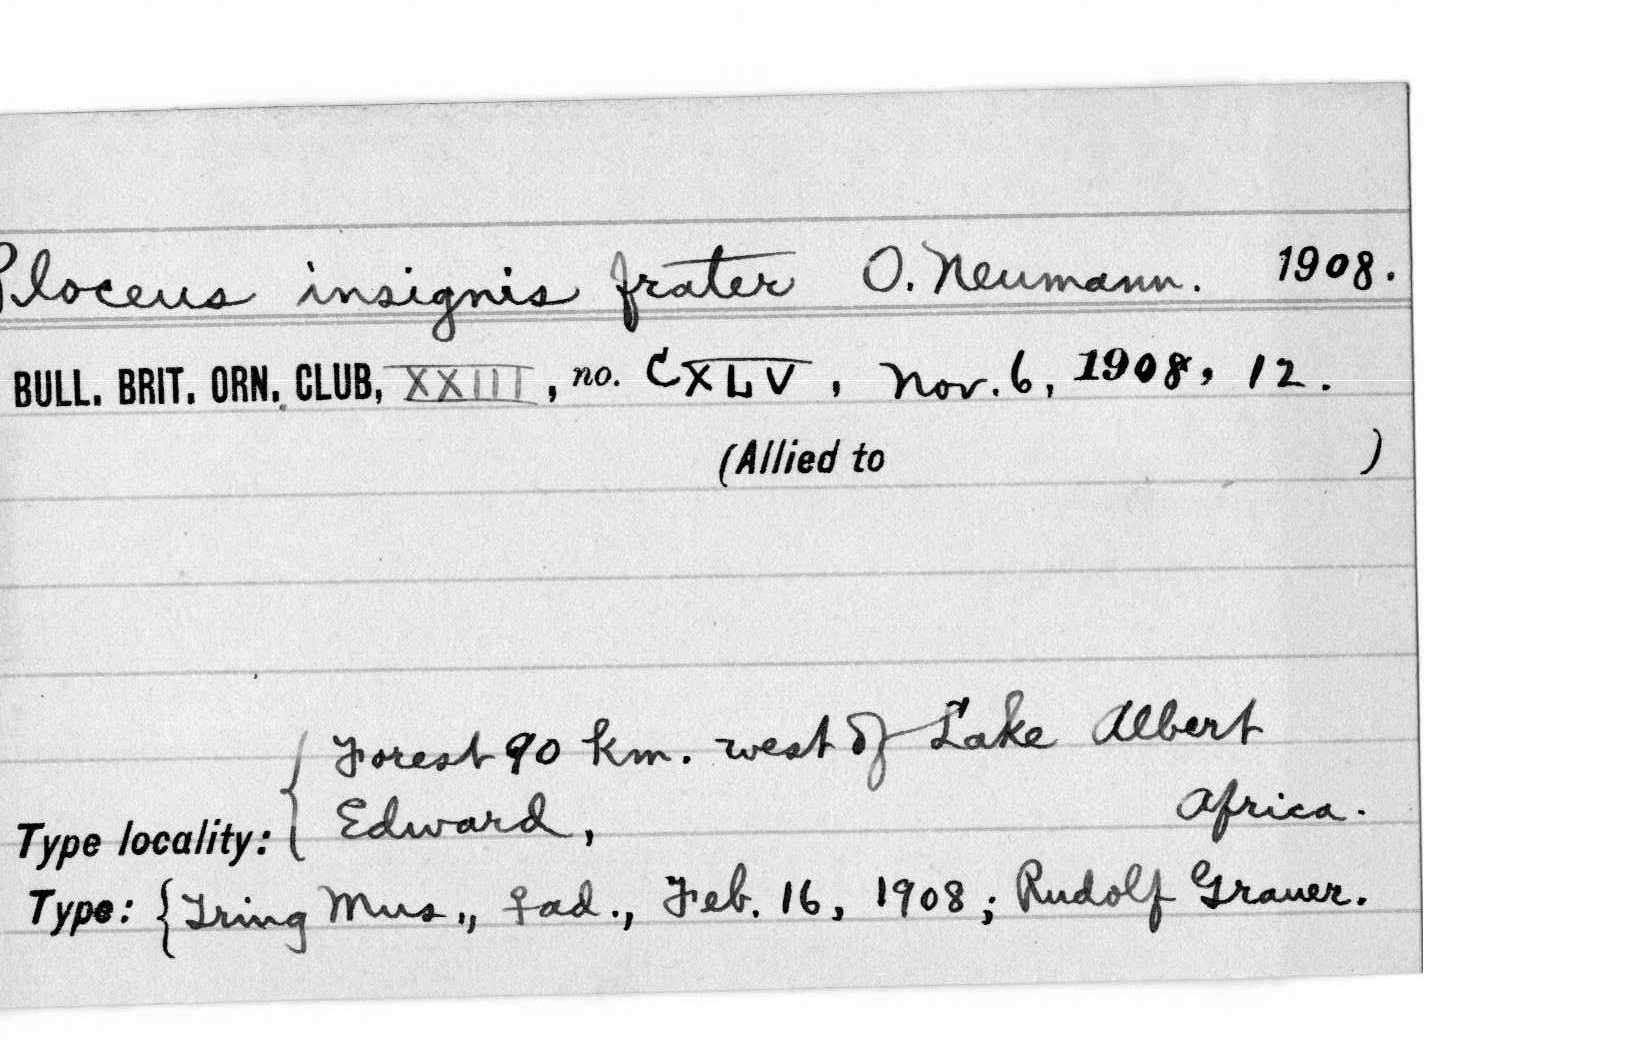 Ploceus insignis frater O. Neumann. 1908.
BULL. BRIT. ORN. CLUB, XXIII, no. CXLV, Nov. 6, 1908, 12.
(Allied to )
Forest 90 km. west of Lake Albert
Type locality: { Edward, Africa.
Type: { Tring Mus., ♀ ad., Feb. 16, 1908; Rudolf Grauer.